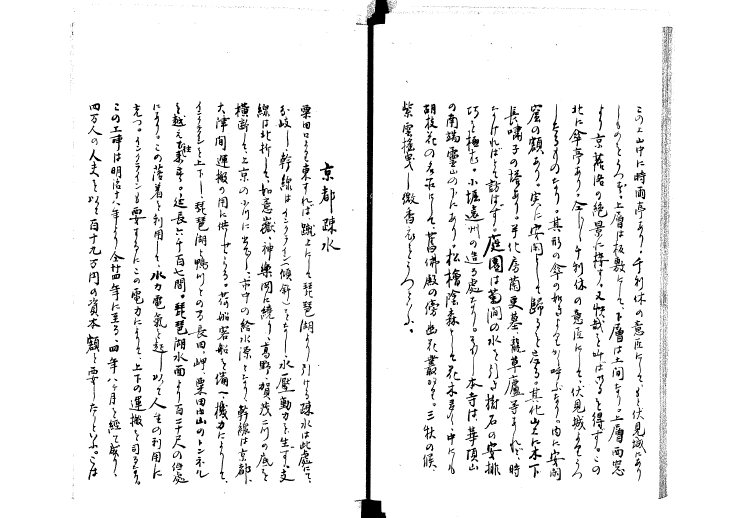 この山中に時雨亭あり千利休の意匠にしてもと伏見城にあり
しものとぞ上層は板敷にして下層は土間なり。上層の窓
より京落の絶景に接す。又快哉を叫ばしむるを得ず。この
北に傘亭あり。全じく千利休の意匠にして伏見城よりうつ
したるものなり。其形の傘の如きよりかく呼ぶなり。内に安閑
窟の額あり。実に安閑として歸るを忘る。其他山上に木下
長嘯子の塔あり。平化房蘭更墓、龍草廬等あれど、時
なければとて訪はず。庭園は菊澗の水を引き樹石の安排
巧を極む。小堀遠州の造る處なり。もと本寺は華頂山
の南端靈山の下にあり。松檜陰森として花木多り中にも
胡枝花の名所にして舊佛殿の傍幽花叢がる。三秋の候、
紫雲搖曳し微香
京都疎水
粟田口より東すれば、蹴上にして琵琶湖より引ける疎水は此處にて
分岐し幹線はインクライン(傾斜)となし、水壓動力を生ず。支
線は北折して、如意嶽、神樂岡に繞り高野、賀茂二川の底を
横断して上京の小川に出で、市中の給水源となり、幹線は京都、
大津間運搬の用に供せらる。荷船客船を備へ機力によりて、
インクラインを上下し琵琶湖と鴨川との間長田岬、粟田山のトンネル
を越えて往来す。延長六千百七間。琵琶湖水面より百二十尺の低處
にあり。この落差を利用して、水力電氣を起し以て人生の利用に
充つ。インクラインも要するにこの電力によりて、上下の運搬を司るなり。
この工事は明治十八年より全廿四年に至る、四年八ケ月を經て成り
四万人の人夫を以て百十九万円の資本額を要したりといふ。こは